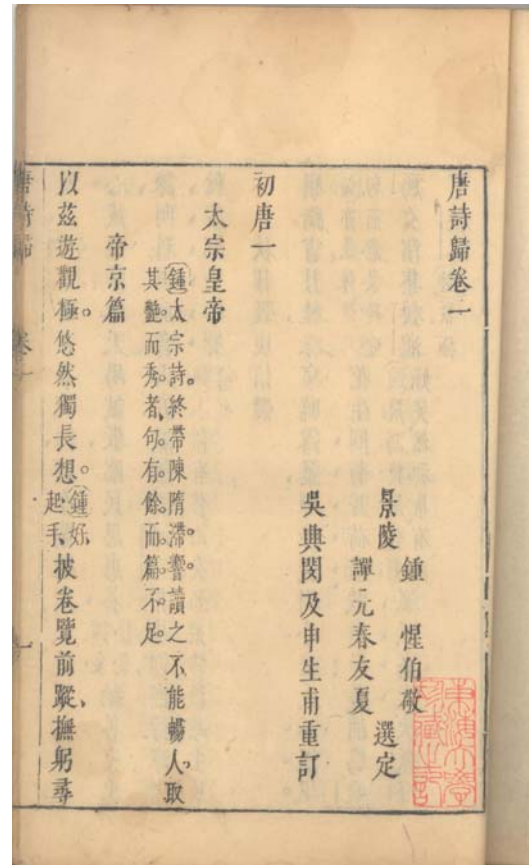 唐詩歸卷一
景陵 鍾 惺伯敬
譚元春友夏 選定
吳興閔及申生甫重訂
初唐一
太宗皇帝
鍾太宗詩。終帶陳隋滯響。讀之不能暢人。取
其艷而秀者、句有餘而篇不足。
帝京篇
以茲遊觀極。悠然獨長想。鍾好起手、披卷覽前蹤、撫躬尋
唐詩歸 卷一 一